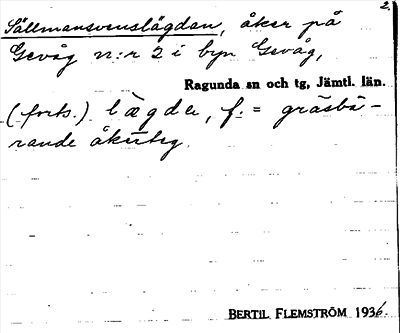 2.
Sällmansvenslägdan, åker på
Gevåg n:r 2 i byn Gevåg,
Ragunda sn och tg, Jämtl. län.
(forts.) lægda, f. = gräsbä-
rande åkerteg.
BERTIL FLEMSTRÖM 1936.